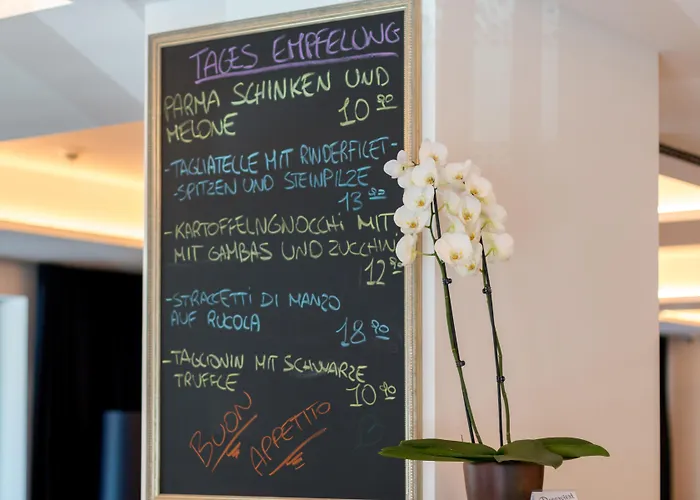 TAGES EMPFELUNG
PARMA SCHINKEN UND
MELONE 10 90
-TAGLIATELLE MIT RINDERFILET-
-SPITZEN UND STEINPILZE
13 50
-KARTOFFELNGNOCCHI MIT
MIT GAMBAS UND ZUCCHIN
12 90
-STRACCETTI DI MANZO
AUF RUCOLA 18 90
-TAGLIONIN MIT SCHWARZE
TRUFFLE 10 90
BUON
APPETITO